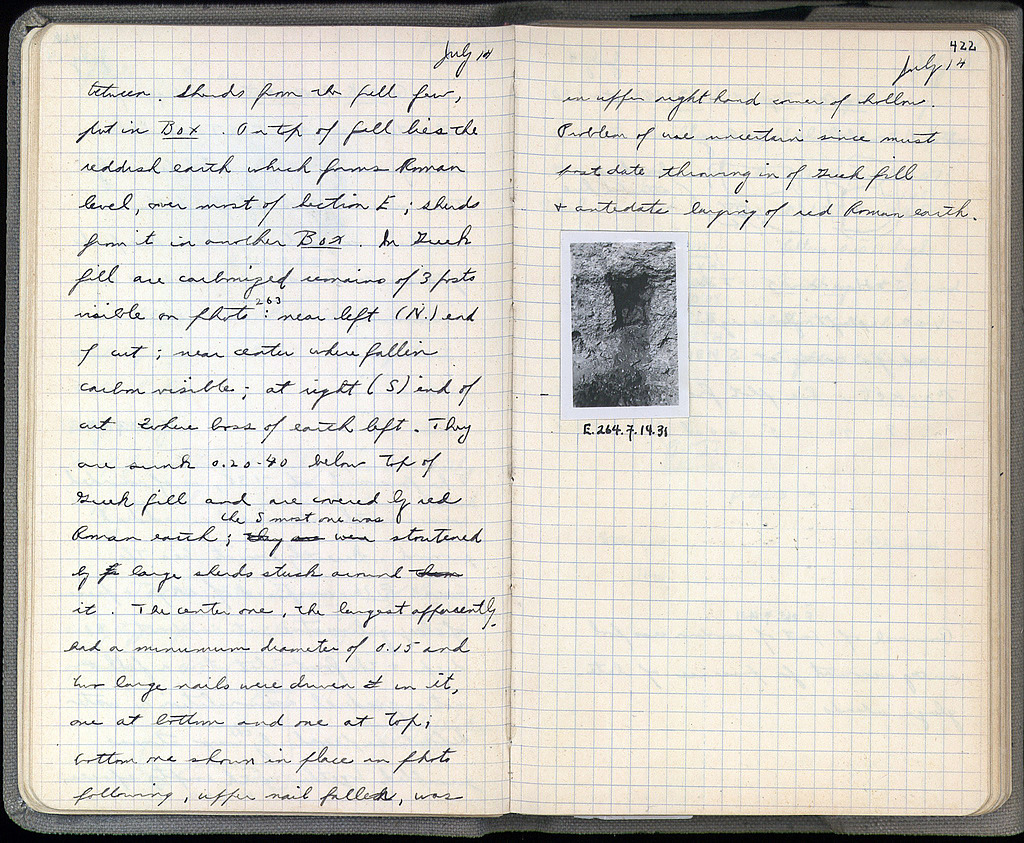 July 14
between. Sherds from the fill few,
put in Box. On top of fill lies the
reddish earth which forms Roman
level, over most of Section E; sherds
from it in another Box. In Greek
fill are carbonized remains of 3 posts
visible on photo 263: near left (N.) end
of cut; near center where fallen
carbon visible; at right (S) end of
cut where boss of earth left. They
are sunk 0.20-40 below top of
Greek fill and are covered by red
Roman earth; they are the S most one was were stoutened
by large sherds stuck around them
it. The center one, the largest apparently,
had a minimum diameter of 0.15 and
two large nails were driven in it,
one at bottom and one at top;
bottom one shown in place in photo
following, upper nail fallen, was
422
July 14
in upper right hand corner of hollow.
Problem of use uncertain since must
postdate throwing in of Greek fill
+ antedate laying of red Roman earth.
E.264.7.14.31